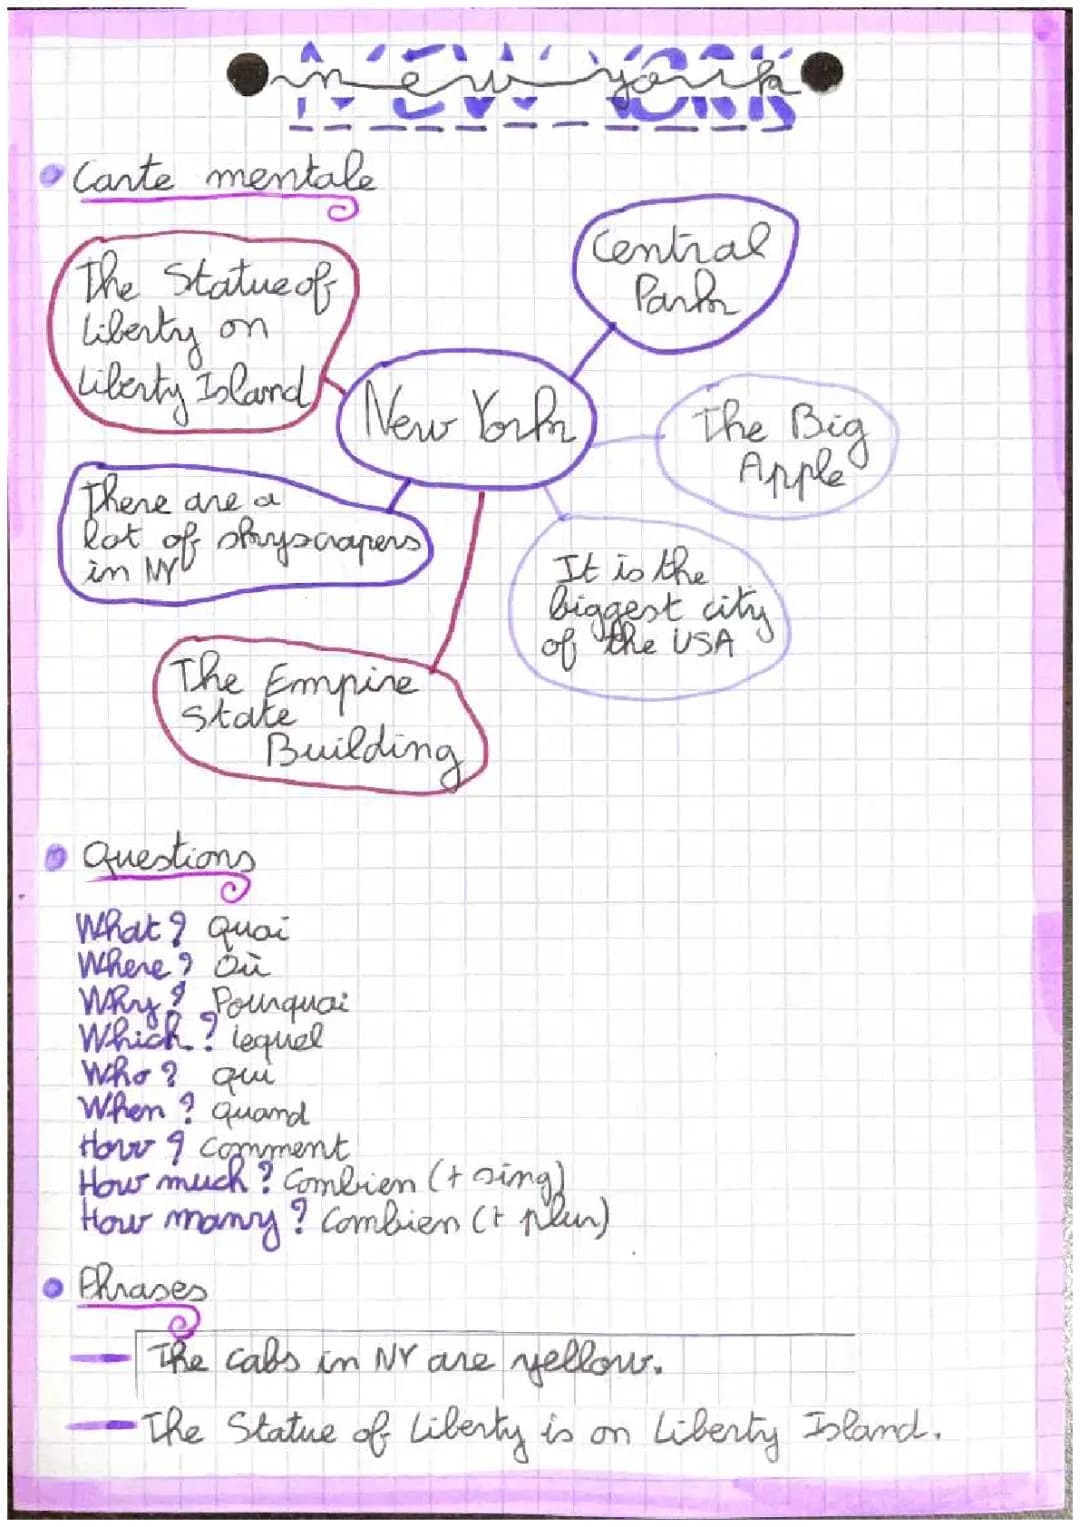 new york
Carte mentale
The Statue of
Liberty on
Liberty Island
Central
Park
New York
The Big
Apple
There are a
lot of skyscrapers
in NY
It is the
biggest city
of the USA
The Empire
State
Building
Questions
What? Quoi
Where? Où
Why? Pourquoi
Which? lequel
Who? qui
When? Quand
How? Comment
How much? Combien (+ sing)
How many? Combien (+ plur)
Phrases
The cabs in NY are yellow.
The Statue of Liberty is on Liberty Island.